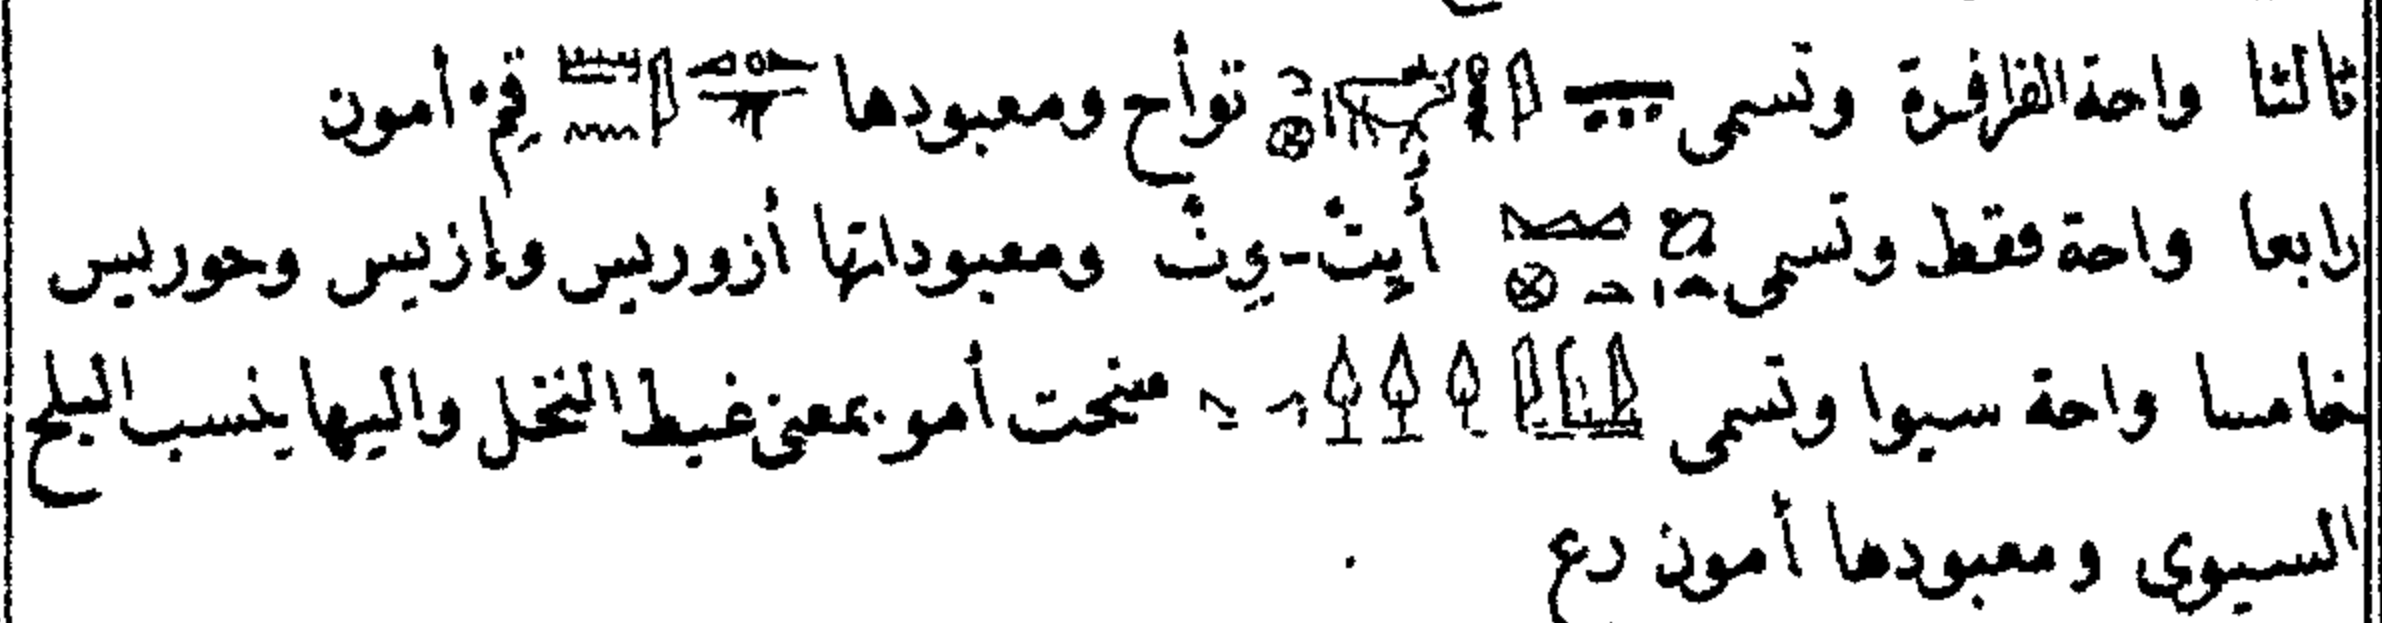 ثالثا واحة الفرافرة وتسمى توأح ومعبودها قم أمون
رابعا واحة فقط وتسمى أيت-وت ومعبوداتها أزوريس وإزيس وحوريس
خامسا واحة سيوا وتسمى سخت أمو بمعنى غيط النخل واليها ينسب البلح
السيوى ومعبودها أمون رع